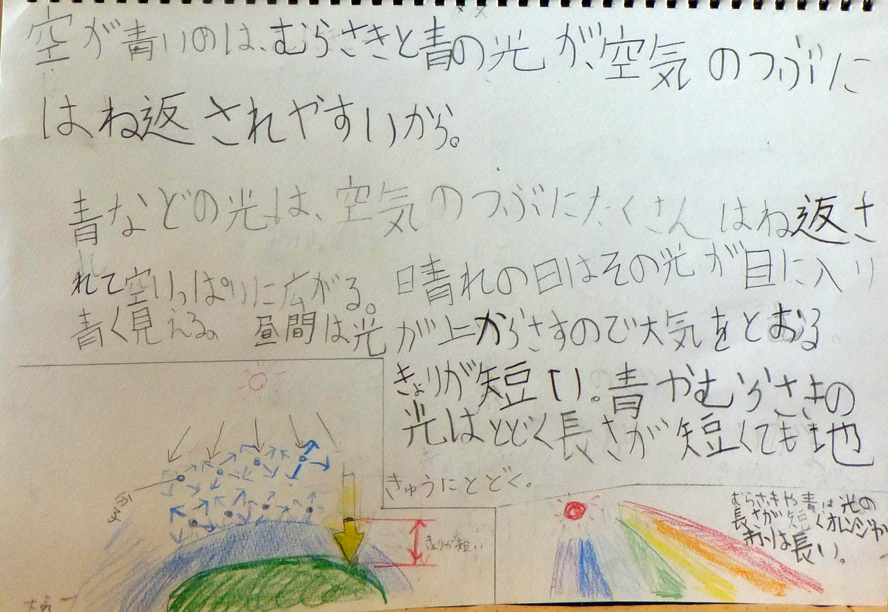 空が青いのは、むらさきと青の光が、空気のつぶに
はね返されやすいから。
青などの光は、空気のつぶにたくさんはね返さ
れて空いっぱいに広がる。晴れの日はその光が目に入り
青く見える。昼間は光が上からさすので大気をとおる
きょりが短い。青やむらさきの
光はとどく長さが短くても地
きゅうにとどく。
つぶ
きょりが短い
大気
むらさきや青は光の
長さが短くオレンジか
赤は長い。